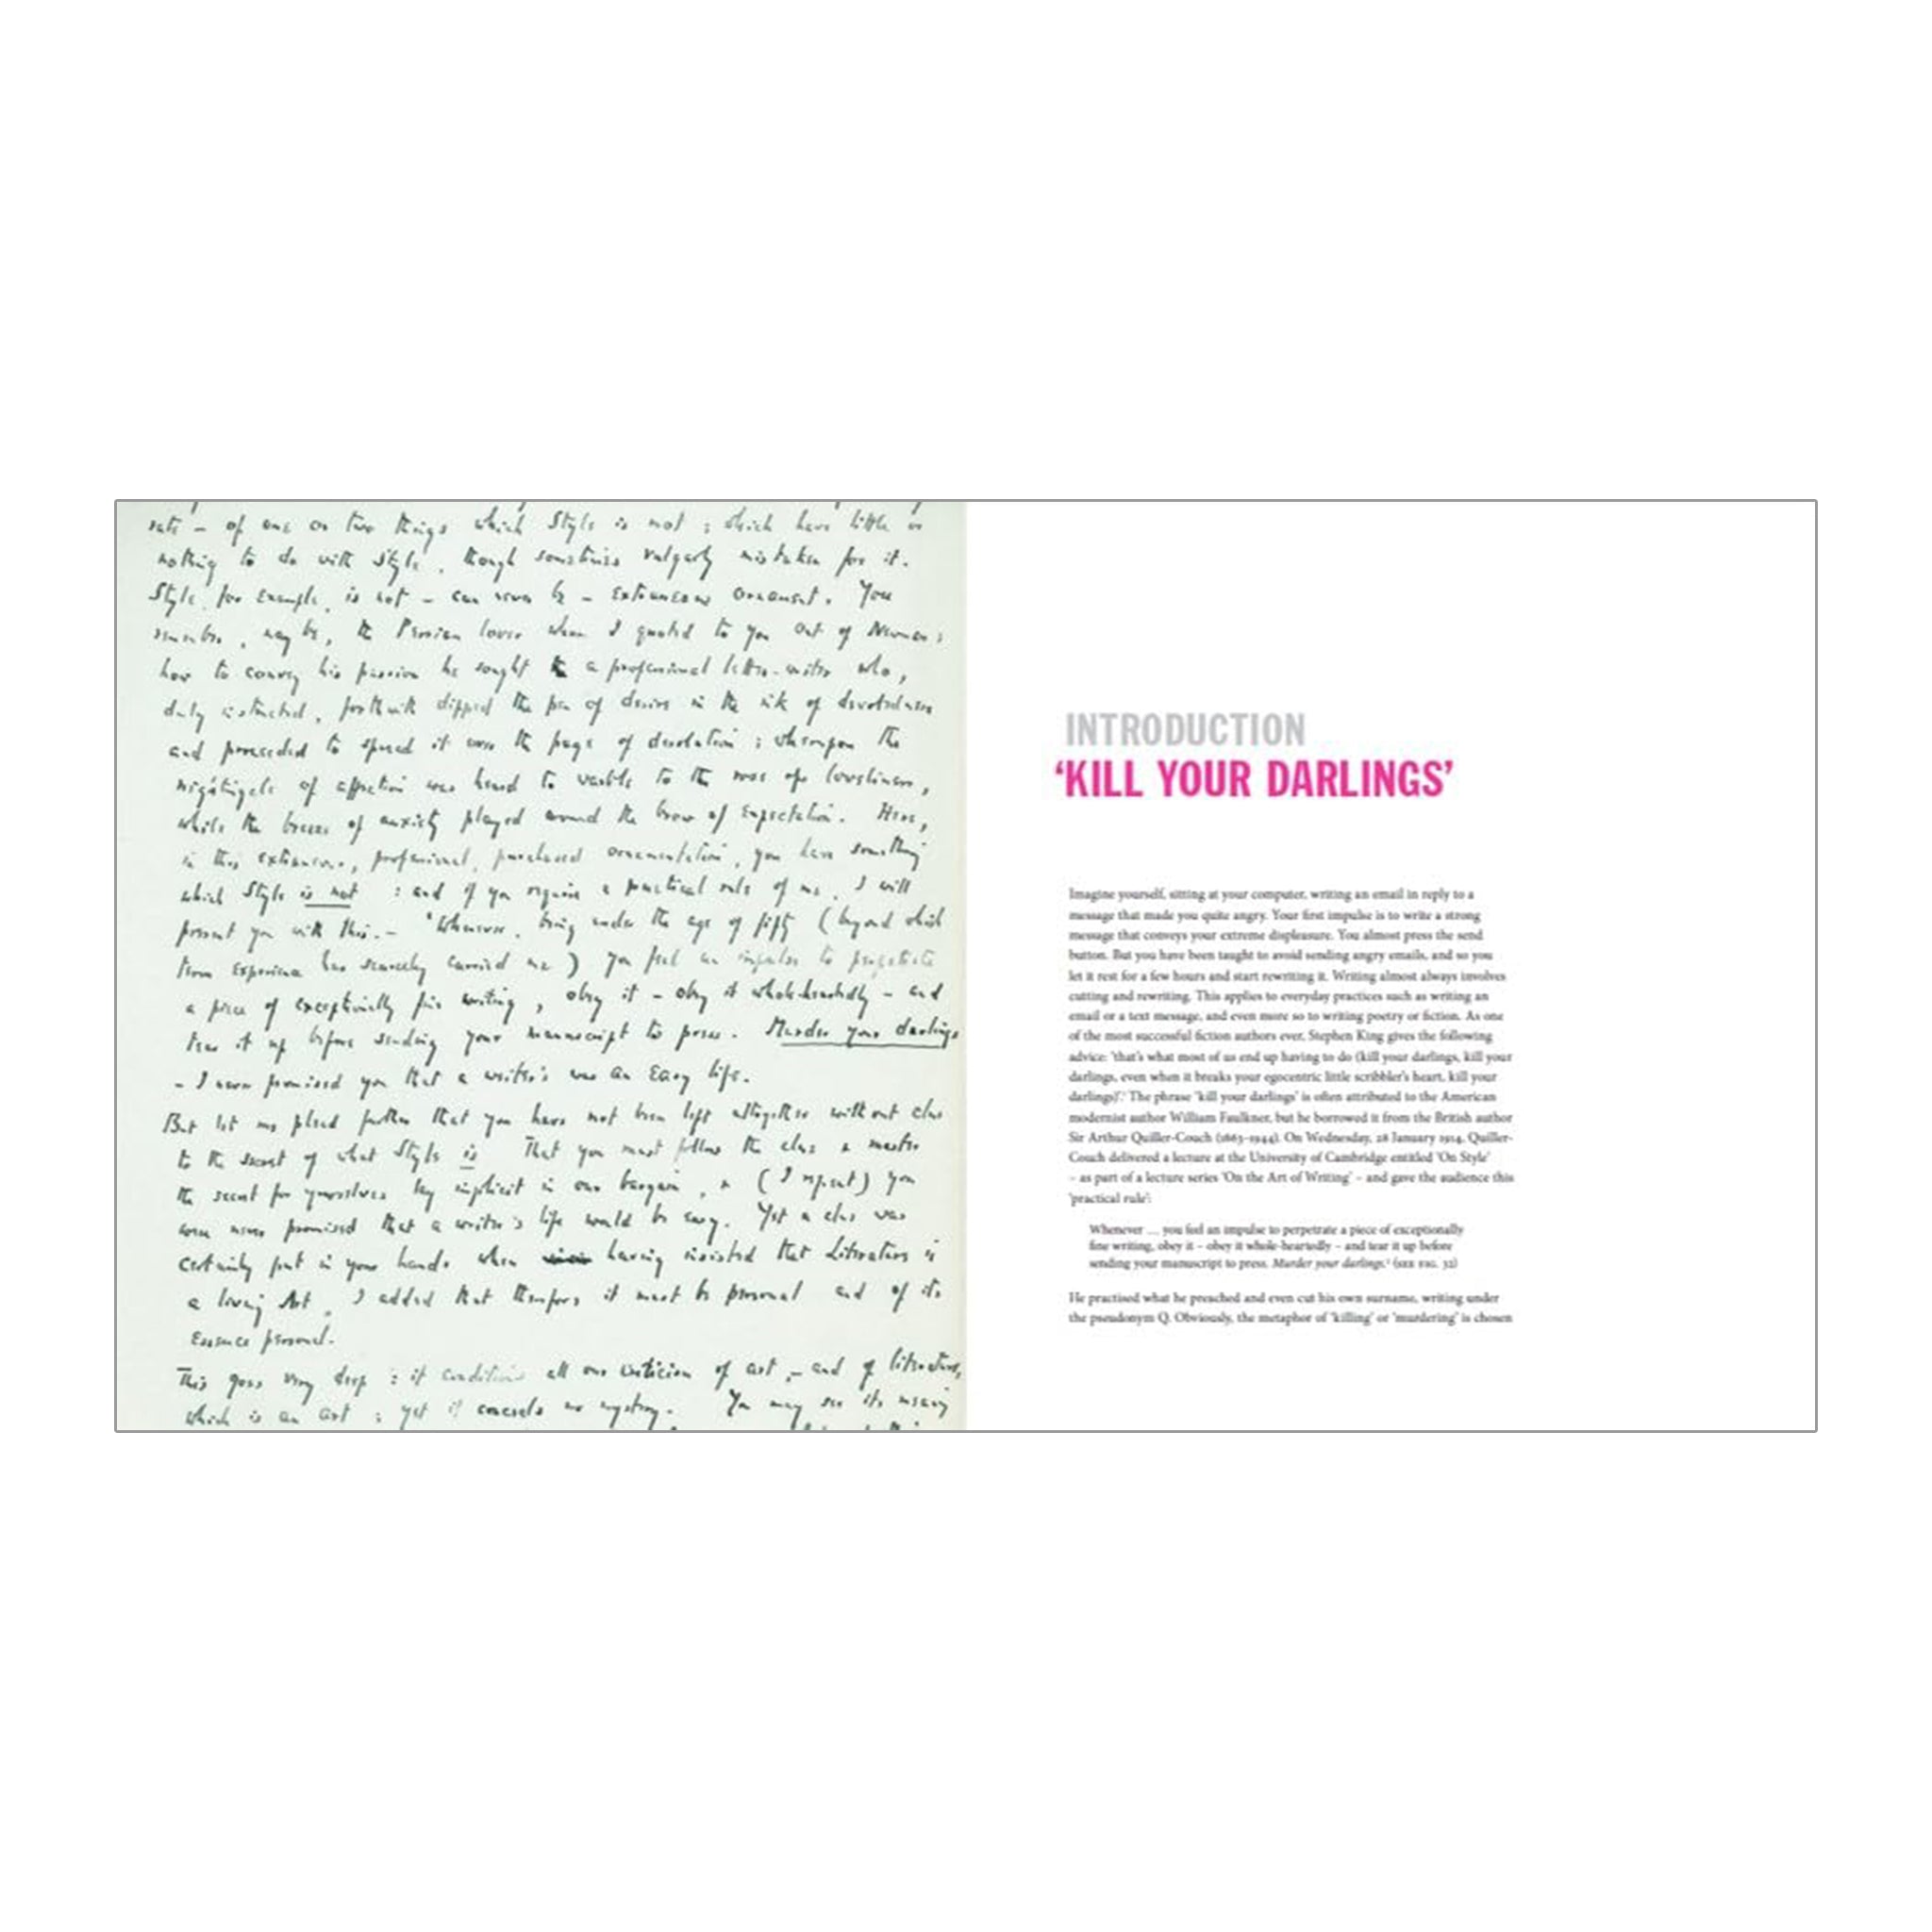 rate – of one or two things which Style is not ; which have little or
nothing to do with Style, though sometimes vulgarly mistaken for it.
Style, for example, is not – can never be – extraneous ornament. You
remember, may be, the Persian lover whom I quoted to you out of Newman:
how to convey his passion he sought a professional letter-writer who,
duly instructed, forthwith dipped the pen of desire in the ink of devotedness
and proceeded to spread it over the page of desolation ; whereupon the
nightingale of affection was heard to warble to the rose of loveliness,
while the breeze of anxiety played around the brow of expectation. Here,
in this extraneous, professional, purchased ornamentation, you have something
which Style is not : and if you require a practical rule of me, I will
present you with this. – 'Whenever, being under the age of fifty (beyond which
term experience has scarcely carried me) you feel an impulse to perpetrate
a piece of exceptionally fine writing, obey it – obey it whole-heartedly – and
tear it up before sending your manuscript to press. Murder your darlings
– I never promised you that a writer's was an easy life.
But let me plead further that you have not been left altogether without clue
to the secret of what Style is. That you must follow the clue & master
the secret for yourselves lay implicit in our bargain, & (I repeat) you
were never promised that a writer's life would be easy. Yet a clue was
certainly put in your hands when having insisted that Literature is
a living Art, I added that therefore it must be personal and of its
essence personal.
This goes very deep : it conditions all our criticism of art, – and of literature,
which is an art ; yet it conceals no mystery. You may see its meaning
INTRODUCTION
‘KILL YOUR DARLINGS’
Imagine yourself, sitting at your computer, writing an email in reply to a
message that made you quite angry. Your first impulse is to write a strong
message that conveys your extreme displeasure. You almost press the send
button. But you have been taught to avoid sending angry emails, and so you
let it rest for a few hours and start rewriting it. Writing almost always involves
cutting and rewriting. This applies to everyday practices such as writing an
email or a text message, and even more so to writing poetry or fiction. As one
of the most successful fiction authors ever, Stephen King gives the following
advice: ‘that’s what most of us end up having to do (kill your darlings, kill your
darlings, even when it breaks your egocentric little scribbler’s heart, kill your
darlings)’.¹ The phrase ‘kill your darlings’ is often attributed to the American
modernist author William Faulkner, but he borrowed it from the British author
Sir Arthur Quiller-Couch (1863–1944). On Wednesday, 28 January 1914, Quiller-
Couch delivered a lecture at the University of Cambridge entitled ‘On Style’
– as part of a lecture series ‘On the Art of Writing’ – and gave the audience this
‘practical rule’:
Whenever … you feel an impulse to perpetrate a piece of exceptionally
fine writing, obey it – obey it whole-heartedly – and tear it up before
sending your manuscript to press. Murder your darlings.² (SEE FIG. 32)
He practised what he preached and even cut his own surname, writing under
the pseudonym Q. Obviously, the metaphor of ‘killing’ or ‘murdering’ is chosen